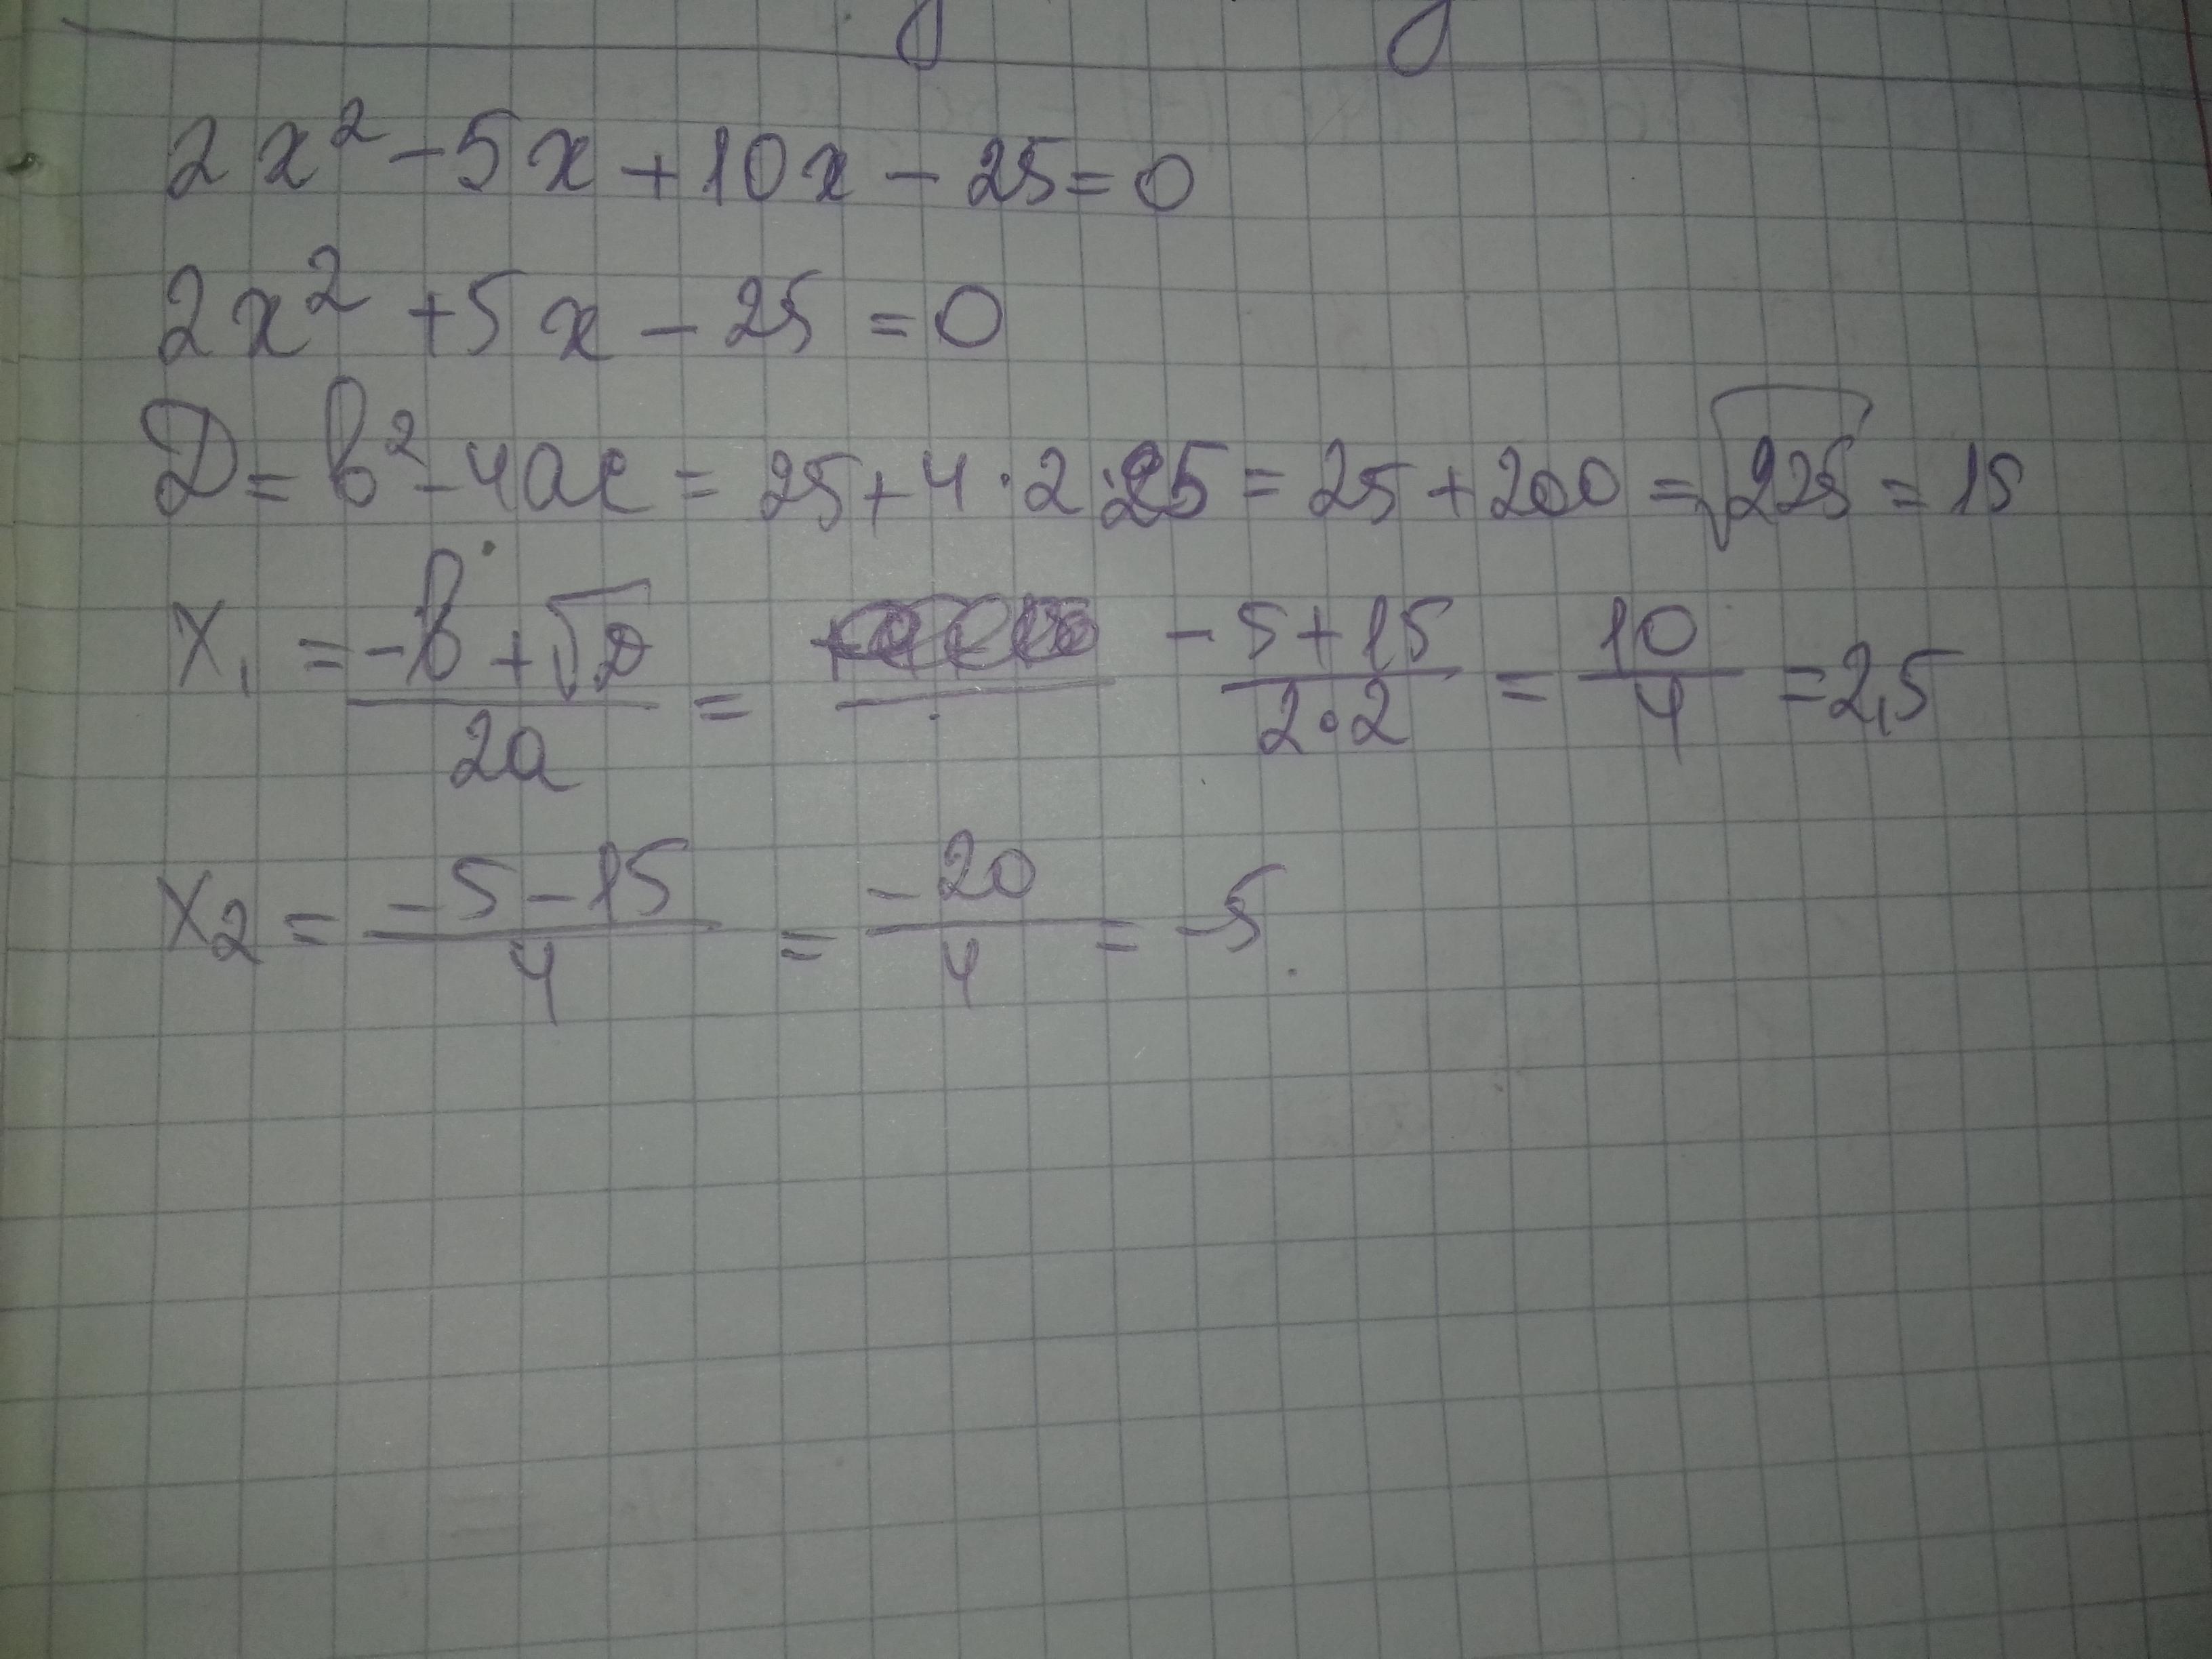 2x² - 5x + 10x - 25 = 0
2x² + 5x - 25 = 0
D = b² - 4ac = 25 + 4 · 2 · 25 = 25 + 200 = √225 = 15
x₁ = (-b + √D)/2a = (-5 + 15)/(2·2) = 10/4 = 2,5
x₂ = (-5 - 15)/4 = -20/4 = -5